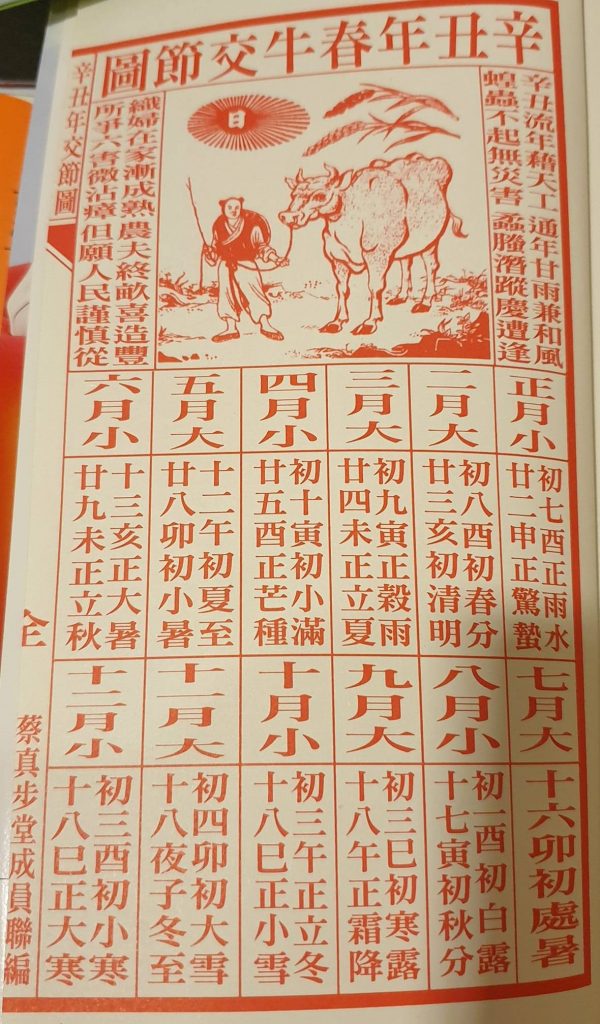 辛丑年春牛交節圖
辛丑流年藉天工 通年甘雨兼和風
蝗蟲不起無災害 蟊螣潛蹤慶遭逢
日
織婦在家漸成熟 農夫終畝喜造豐
所爭六害微沾瘴 但願人民謹慎從
正月小
初七酉正雨水
廿二申正驚蟄
二月大
初八酉初春分
廿三亥初清明
三月大
初九寅正穀雨
廿四未正立夏
四月小
初十寅初小滿
廿五酉正芒種
五月大
十二午初夏至
廿八卯初小暑
六月小
十三亥正大暑
廿九未正立秋
七月大
十六卯初處暑
八月小
初一酉初白露
十七寅初秋分
九月大
初三巳初寒露
十八午正霜降
十月小
初三午正立冬
十八巳正小雪
十一月大
初四卯初大雪
十八夜子冬至
十二月小
初三酉初小寒
十八巳正大寒
辛丑年交節圖
全
蔡真步堂成員聯編